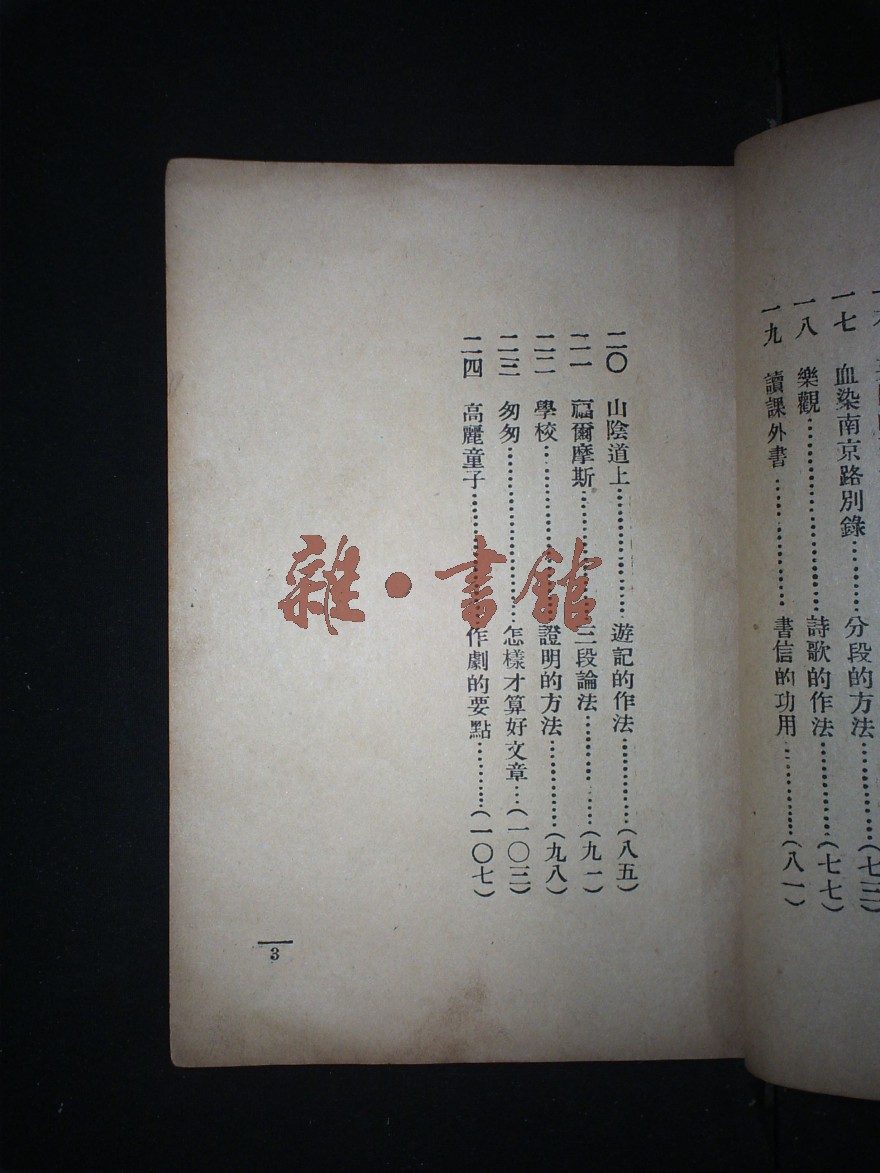 一七　血染南京路別錄…………分段的方法…………(七三)
一八　樂觀…………詩歌的作法…………(七七)
一九　讀課外書…………書信的功用…………(八一)
二〇　山陰道上…………遊記的作法…………(八五)
二一　福爾摩斯…………三段論法…………(九一)
二二　學校…………證明的方法…………(九八)
二三　匆匆…………怎樣才算好文章…(一〇三)
二四　高麗童子…………作劇的要點…………(一〇七)
3
雜·書館